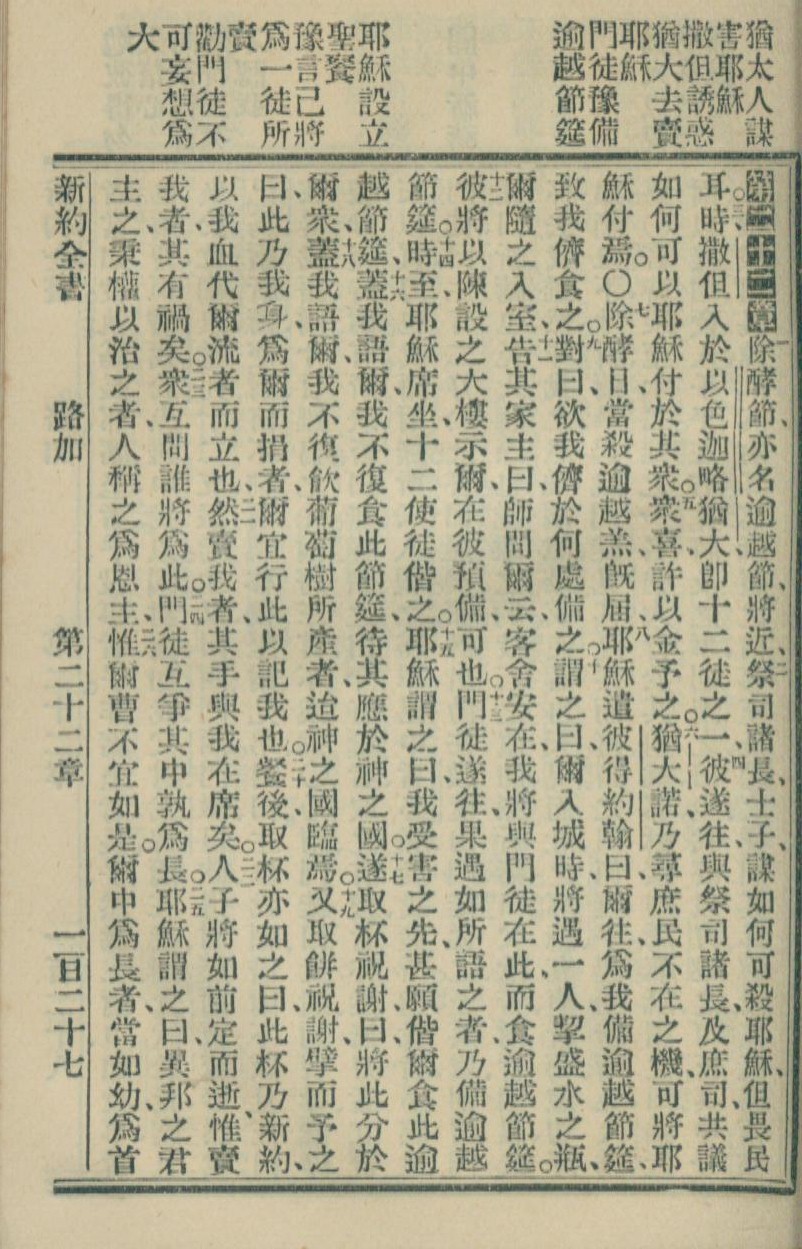 猶太人謀
害耶穌
撒但誘惑
猶大去賣
耶穌
門徒豫備
逾越節筵
耶穌設立
聖餐
豫言己將
爲一徒所
賣
勸門徒不
可妄想爲
大
第二十二章一除酵節、亦名逾越節、將近、二祭司諸長、士子、謀如何可殺耶穌、但畏民
耳。三時撒但入於以色迦略猶大、卽十二徒之一、四彼遂往與祭司諸長、及庶司共議
如何可以耶穌付於其衆。五衆喜、許以金予之。六猶大諾、乃尋庶民不在之機、可將耶
穌付焉。〇七除酵日、當殺逾越羔、旣屆、八耶穌遣彼得約翰曰、爾往、爲我備逾越節筵、
致我儕食之。九對曰、欲我儕於何處備之。十謂之曰、爾入城時、將遇一人、挈盛水之瓶、
爾隨之入室、十一告其家主曰、師問爾云、客舍安在、我將與門徒在此、而食逾越節筵。
十二彼將以陳設之大樓示爾、在彼預備可也。十三門徒遂往、果遇如所語之者、乃備逾越
節筵。十四時至、耶穌席坐、十二使徒偕之。十五耶穌謂之曰、我受害之先、甚願偕爾食此逾
越節筵、十六蓋我語爾、我不復食此節筵、待其應於神之國。十七遂取杯祝謝、曰、將此分於
爾衆、十八蓋我語爾、我不復飮葡萄樹所產者、迨神之國臨焉。十九又取餅祝謝、擘而予之
曰、此乃我身、爲爾而捐者、爾宜行此以記我也。二十餐後、取杯亦如之、曰、此杯乃新約、
以我血代爾流者而立也、二一然賣我者、其手與我在席矣。二二人子將如前定而逝、惟賣
我者、其有禍矣。二三衆互問誰將爲此。二四門徒互爭其中孰爲長。二五耶穌謂之曰、異邦之君
主之、秉權以治之者、人稱之爲恩主、二六惟爾曹不宜如是。爾中爲長者、當如幼、爲首
新約全書 路加 第二十二章 一百二十七